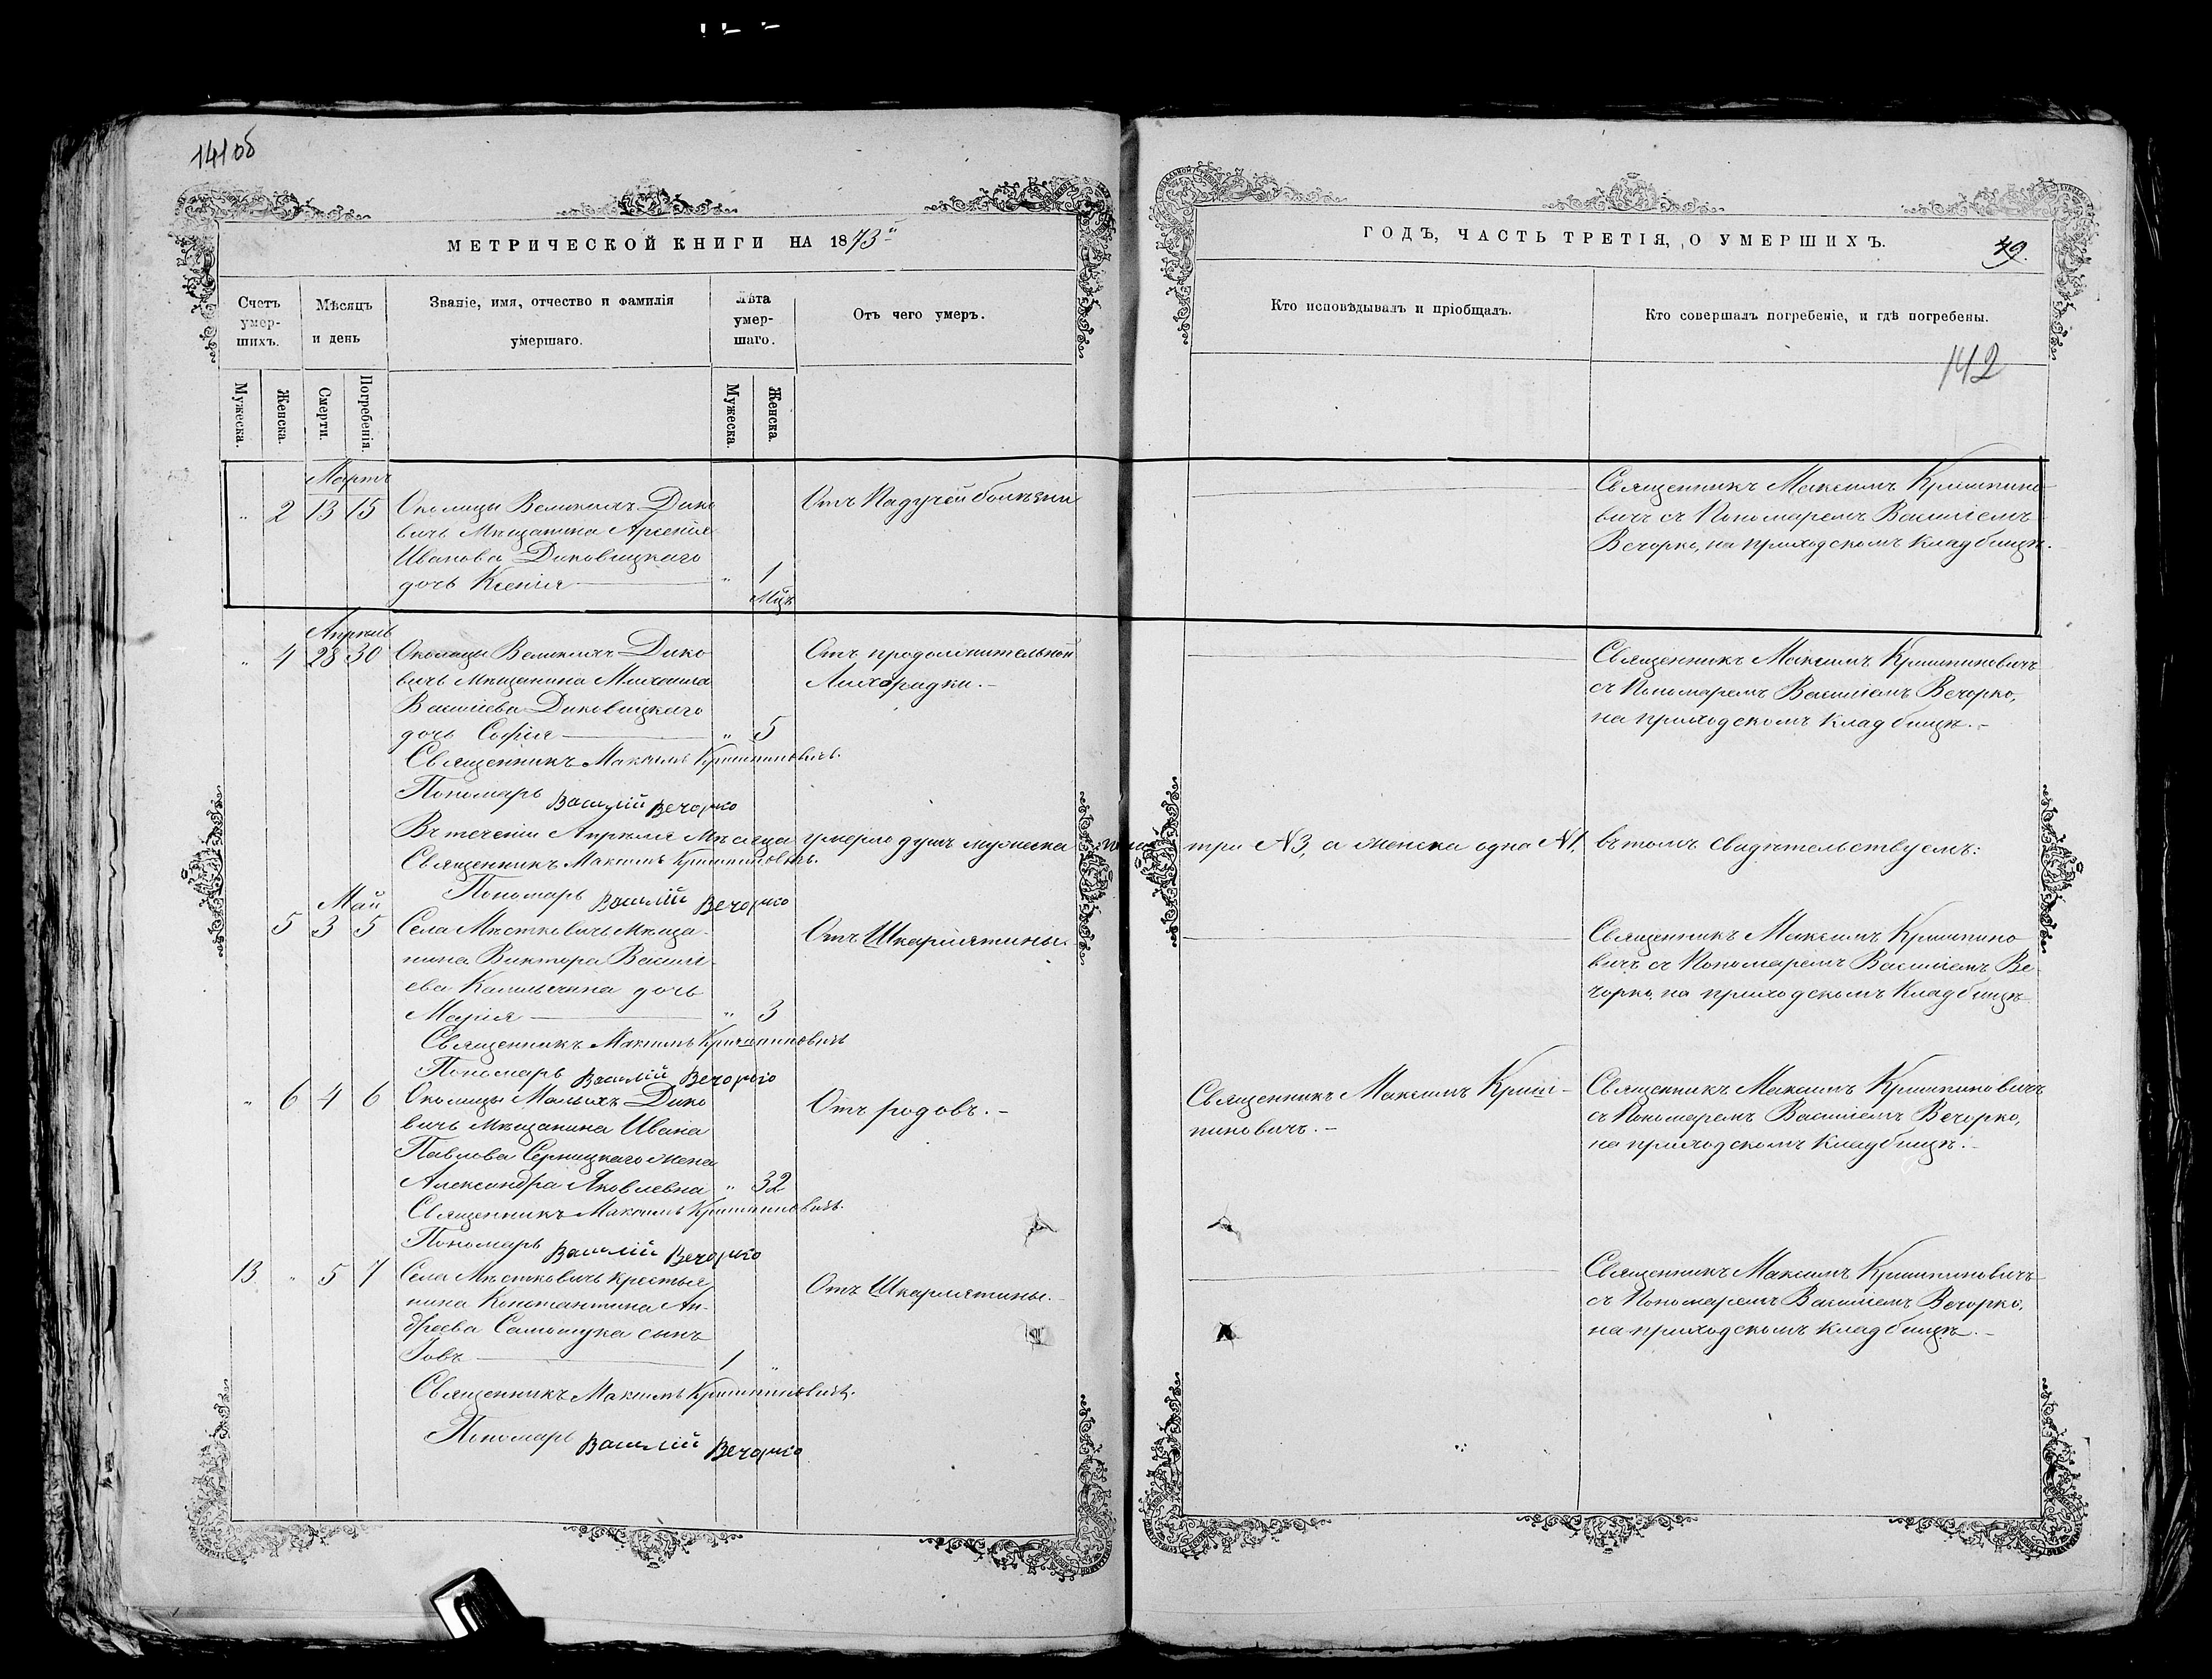 141 об
МЕТРИЧЕСКОЙ КНИГИ НА 1873й
ГОДЪ, ЧАСТЬ ТРЕТІЯ, О УМЕРШИХЪ.
79.
Счетъ умер-шихъ.
Мѣсяцъ и день
Званіе, имя, отчество и фамилія
умершаго.
Лѣта умер-шаго.
Отъ чего умеръ.
Кто исповѣдывалъ и пріобщалъ.
Кто совершалъ погребеніе, и гдѣ погребены.
142
Мужеска.
Женска.
Смерти.
Погребенія.
Мужеска.
Женска.
Мартъ
" 2 13 15
Околицы Великихъ Дико
вичь Мѣщанина Арсенія
Иванова Диковицкаго
дочь Ксенія " 1
Мцъ
Отъ Падучей болѣзни
Священникъ Максимъ Криштино
вичъ съ Пономаремъ Василіемъ
Вечорко, на приходскомъ кладбищѣ.
Апрѣль
" 4 28 30
Околицы Великихъ Дико
вичь Мѣщанина Михаила
Василіева Диковицкаго
дочь Софія " 5
Отъ продолжительной
Лихорадки.
Священникъ Максимъ Криштиновичъ
съ Пономаремъ Василіемъ Вечорко,
на приходскомъ кладбищѣ.
Священникъ Максимъ Криштиновичъ.
Пономарь Василій Вечорко
Въ теченіи Апрѣля Мѣсяца умерло душъ мужеска пола три №3, а женска одна №1. въ томъ свидѣтельствуемъ:
Священникъ Максимъ Криштиновичъ.
Пономарь Василій Вечорко
Май
5 3 5
Села Мѣстковичь Мѣща-
нина Виктора Василі-
ева дочь
Марія " 3
Отъ Шкарлятины.
Священникъ Максимъ Криштино
вичъ съ Пономаремъ Василіемъ Ве
чорко, на приходскомъ Кладбищѣ
Священникъ Максимъ Криштиновичъ
Пономарь Василій Вечорко
" 6 4 6
Околицы Малыхъ Дико
вичь Мѣщанина Ивана
Павлова Серницкаго жена
Александра Яковлевна " 32
Отъ родовъ.
Священникъ Максимъ Криш-
тиновичъ.
Священникъ Максимъ Криштиновичъ
съ Пономаремъ Василіемъ Вечорко,
на приходскомъ Кладбищѣ.
Священникъ Максимъ Криштиновичъ.
Пономарь Василій Вечорко
13 " 5 7
Села Мѣстковичь крестья
нина Константина Ан-
дреева сынъ
Іовъ 1 "
Отъ Шкарлятины.
Священникъ Максимъ Криштиновичъ
съ Пономаремъ Василіемъ Вечорко,
на приходскомъ кладбищѣ.
Священникъ Максимъ Криштиновичъ.
Пономарь Василій Вечорко